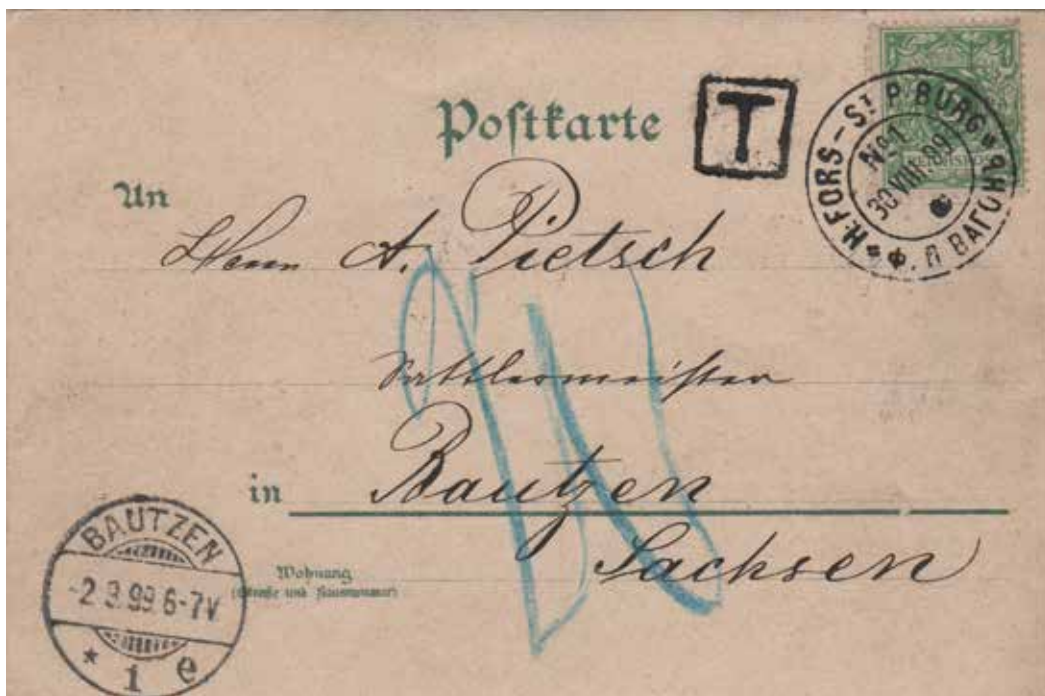 Postkarte
T
H.FORS-ST P:BURG
No 1
30 VIII.99
Ф. П ВАГОНЪ
REICHSPOST
An
Herrn A. Pietsch
Sattlermeister
in Bautzen
Sachsen
Wohnung
(Straße und Hausnummer)
BAUTZEN
-2 9.99 6-7V
* 1 e